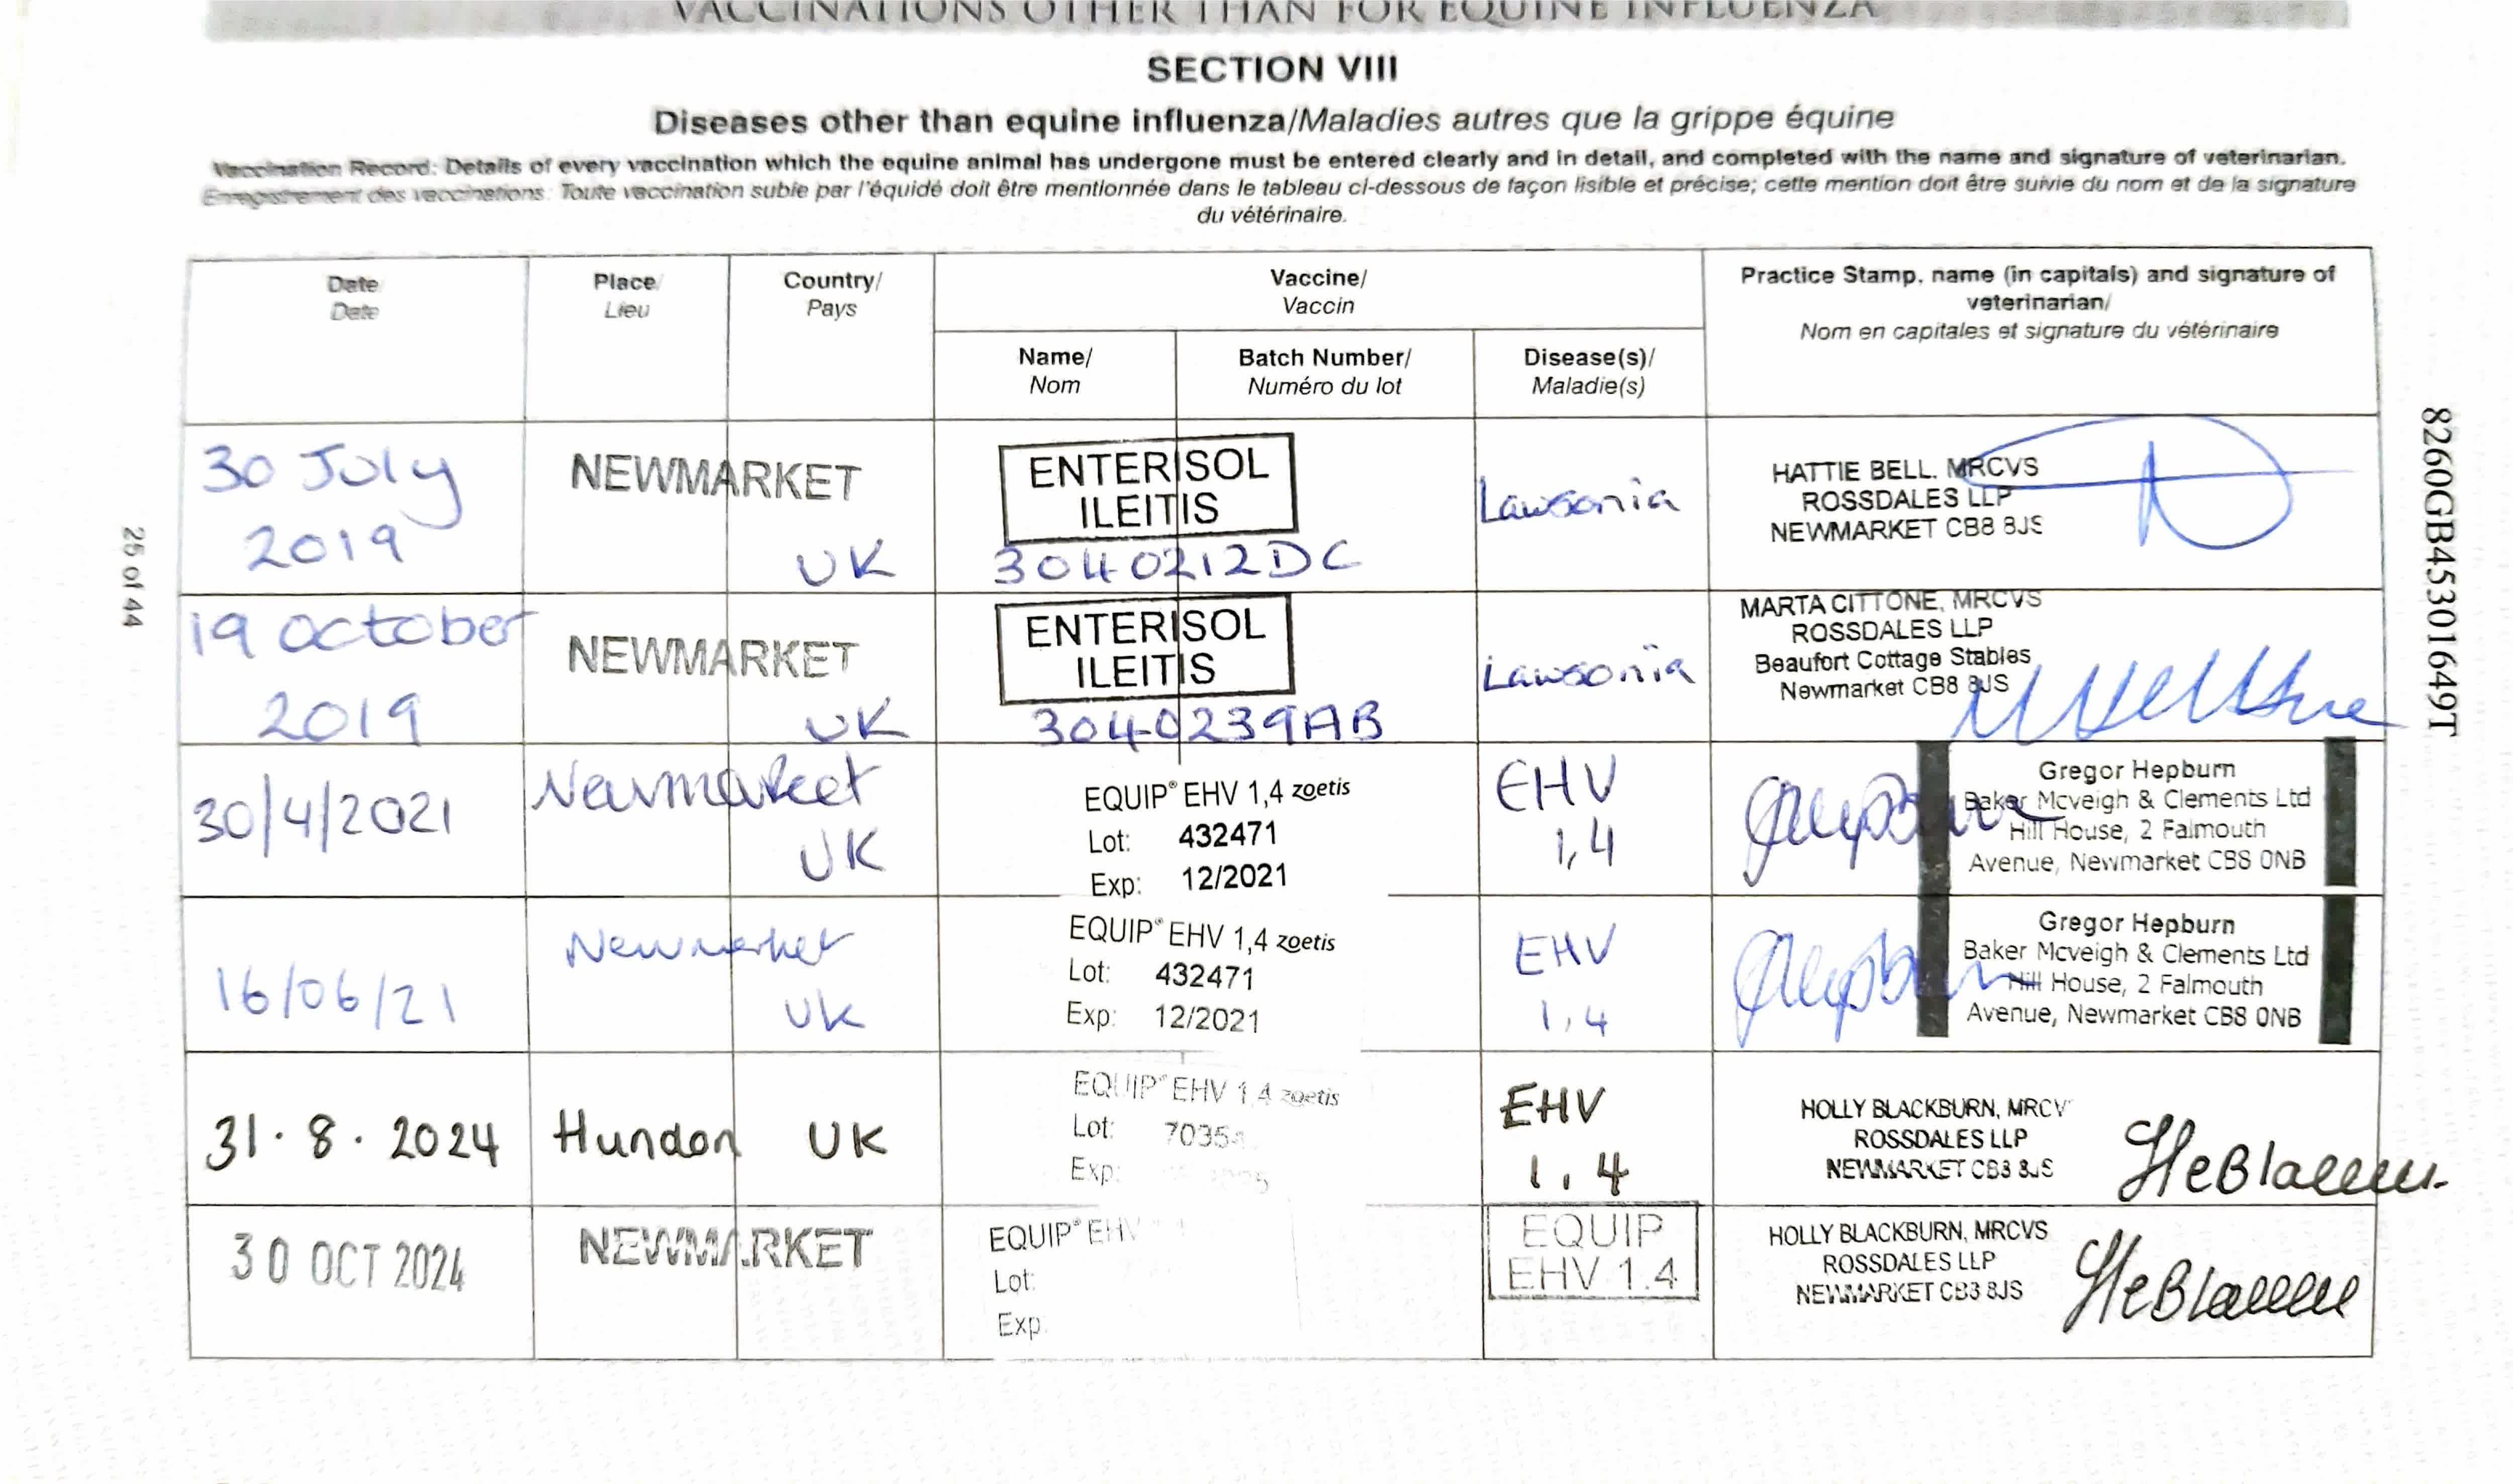 VACCINATIONS OTHER THAN FOR EQUINE INFLUENZA
SECTION VIII
Diseases other than equine influenza/Maladies autres que la grippe équine
Vaccination Record: Details of every vaccination which the equine animal has undergone must be entered clearly and in detail, and completed with the name and signature of veterinarian.
Enregistrement des vaccinations: Toute vaccination subie par l'équidé doit être mentionnée dans le tableau ci-dessous de façon lisible et précise; cette mention doit être suivie du nom et de la signature
du vétérinaire.
Date
Date
Place/
Lieu
Country/
Pays
Vaccine/
Vaccin
Name/
Nom
Batch Number/
Numéro du lot
Disease(s)/
Maladie(s)
Practice Stamp, name (in capitals) and signature of
veterinarian/
Nom en capitales et signature du vétérinaire
30 July
2019
NEWMARKET
UK
ENTERISOL
ILEITIS
3040212DC
Lawsonia
HATTIE BELL. MRCVS
ROSSDALES LLP
NEWMARKET CB8 8JS
19 October
2019
NEWMARKET
UK
ENTERISOL
ILEITIS
3040239AB
Lawsonia
MARTA CITTONE, MRCVS
ROSSDALES LLP
Beaufort Cottage Stables
Newmarket CB8 8JS
30/4/2021
Newmarket
UK
EQUIP® EHV 1,4 zoetis
Lot: 432471
Exp: 12/2021
EHV
1,4
Gregor Hepburn
Baker Mcveigh & Clements Ltd
Hill House, 2 Falmouth
Avenue, Newmarket CB8 0NB
16/06/21
Newmarket
UK
EQUIP® EHV 1,4 zoetis
Lot: 432471
Exp: 12/2021
EHV
1,4
Gregor Hepburn
Baker Mcveigh & Clements Ltd
Hill House, 2 Falmouth
Avenue, Newmarket CB8 0NB
31.8.2024
Hundon
UK
EQUIP® EHV 1,4 zoetis
Lot:
Exp:
EHV
1,4
HOLLY BLACKBURN, MRCV
ROSSDALES LLP
NEWMARKET CB8 8JS
30 OCT 2024
NEWMARKET
EQUIP® EHV
Lot:
Exp
EQUIP
EHV 1.4
HOLLY BLACKBURN, MRCVS
ROSSDALES LLP
NEWMARKET CB8 8JS
25 of 44
8260GB45301649T